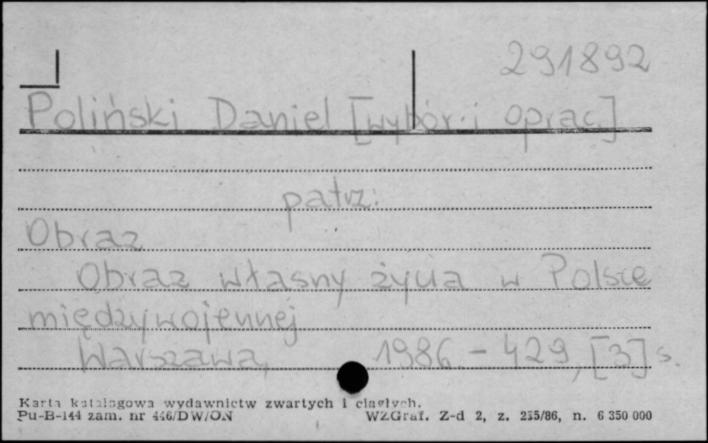 291892
Poliński Daniel [wybór i oprac.]
patrz:
Obraz
Obraz własny życia w Polsce
międzywojennej
Warszawa, 1986. - 429, [3] s.
Karta katalogowa wydawnictw zwartych i ciągłych.
Pu-B-144 zam. nr 446/DW/ON WZGraf. Z-d 2, z. 255/86, n. 6 350 000